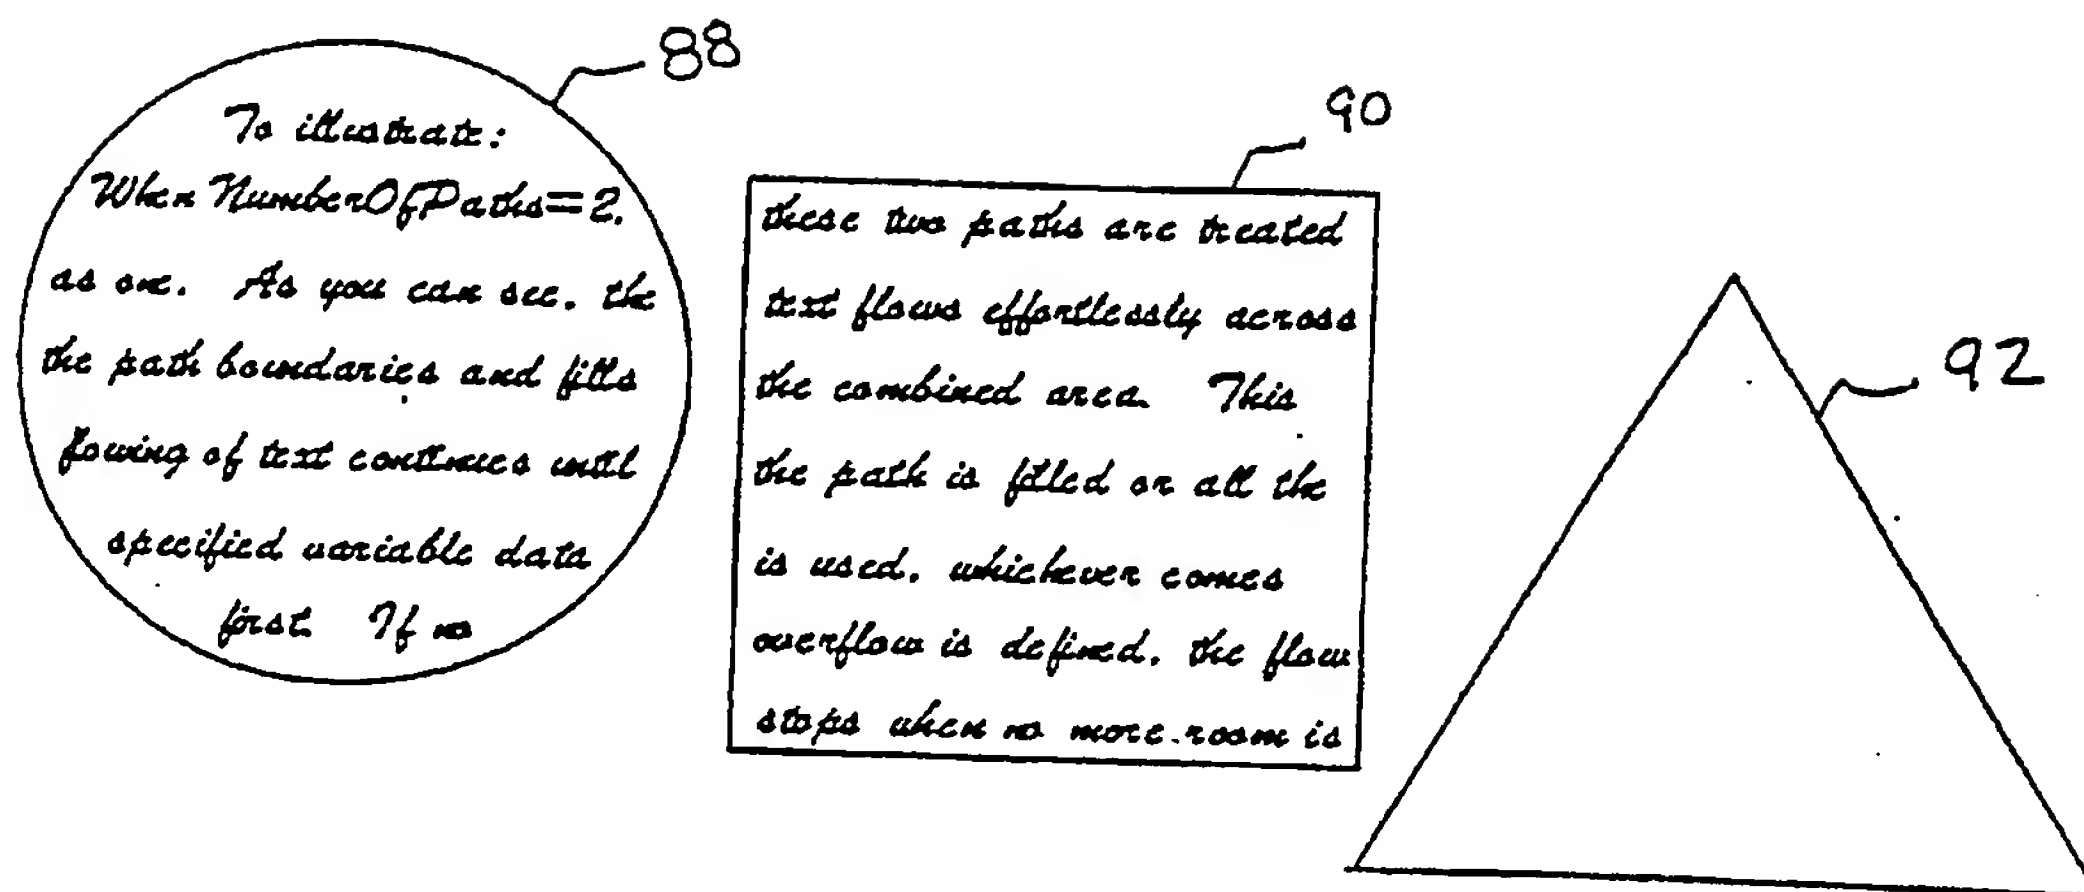 88
To illustrate:
When NumberOfPaths=2,
as one. As you can see, the
the path boundaries and fills
flowing of text continues until
specified variable data
first. If no
90
these two paths are treated
text flows effortlessly across
the combined area. This
the path is filled or all the
is used, whichever comes
overflow is defined, the flow
stops when no more room is
92